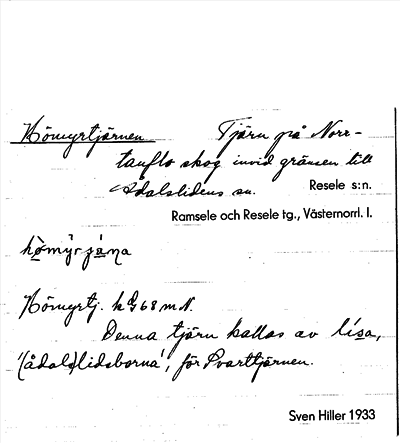 Hömyrtjärnen Tjärn på Norr-
tanflo skog invid gränsen till
Ådalslidens sn. Resele s:n.
Ramsele och Resele tg., Västernorrl. l.
Hömyrtj. 68 m N.
Denna tjärn kallas av
(ådals)lidsborna, för Svarttjärnen.
Sven Hiller 1933